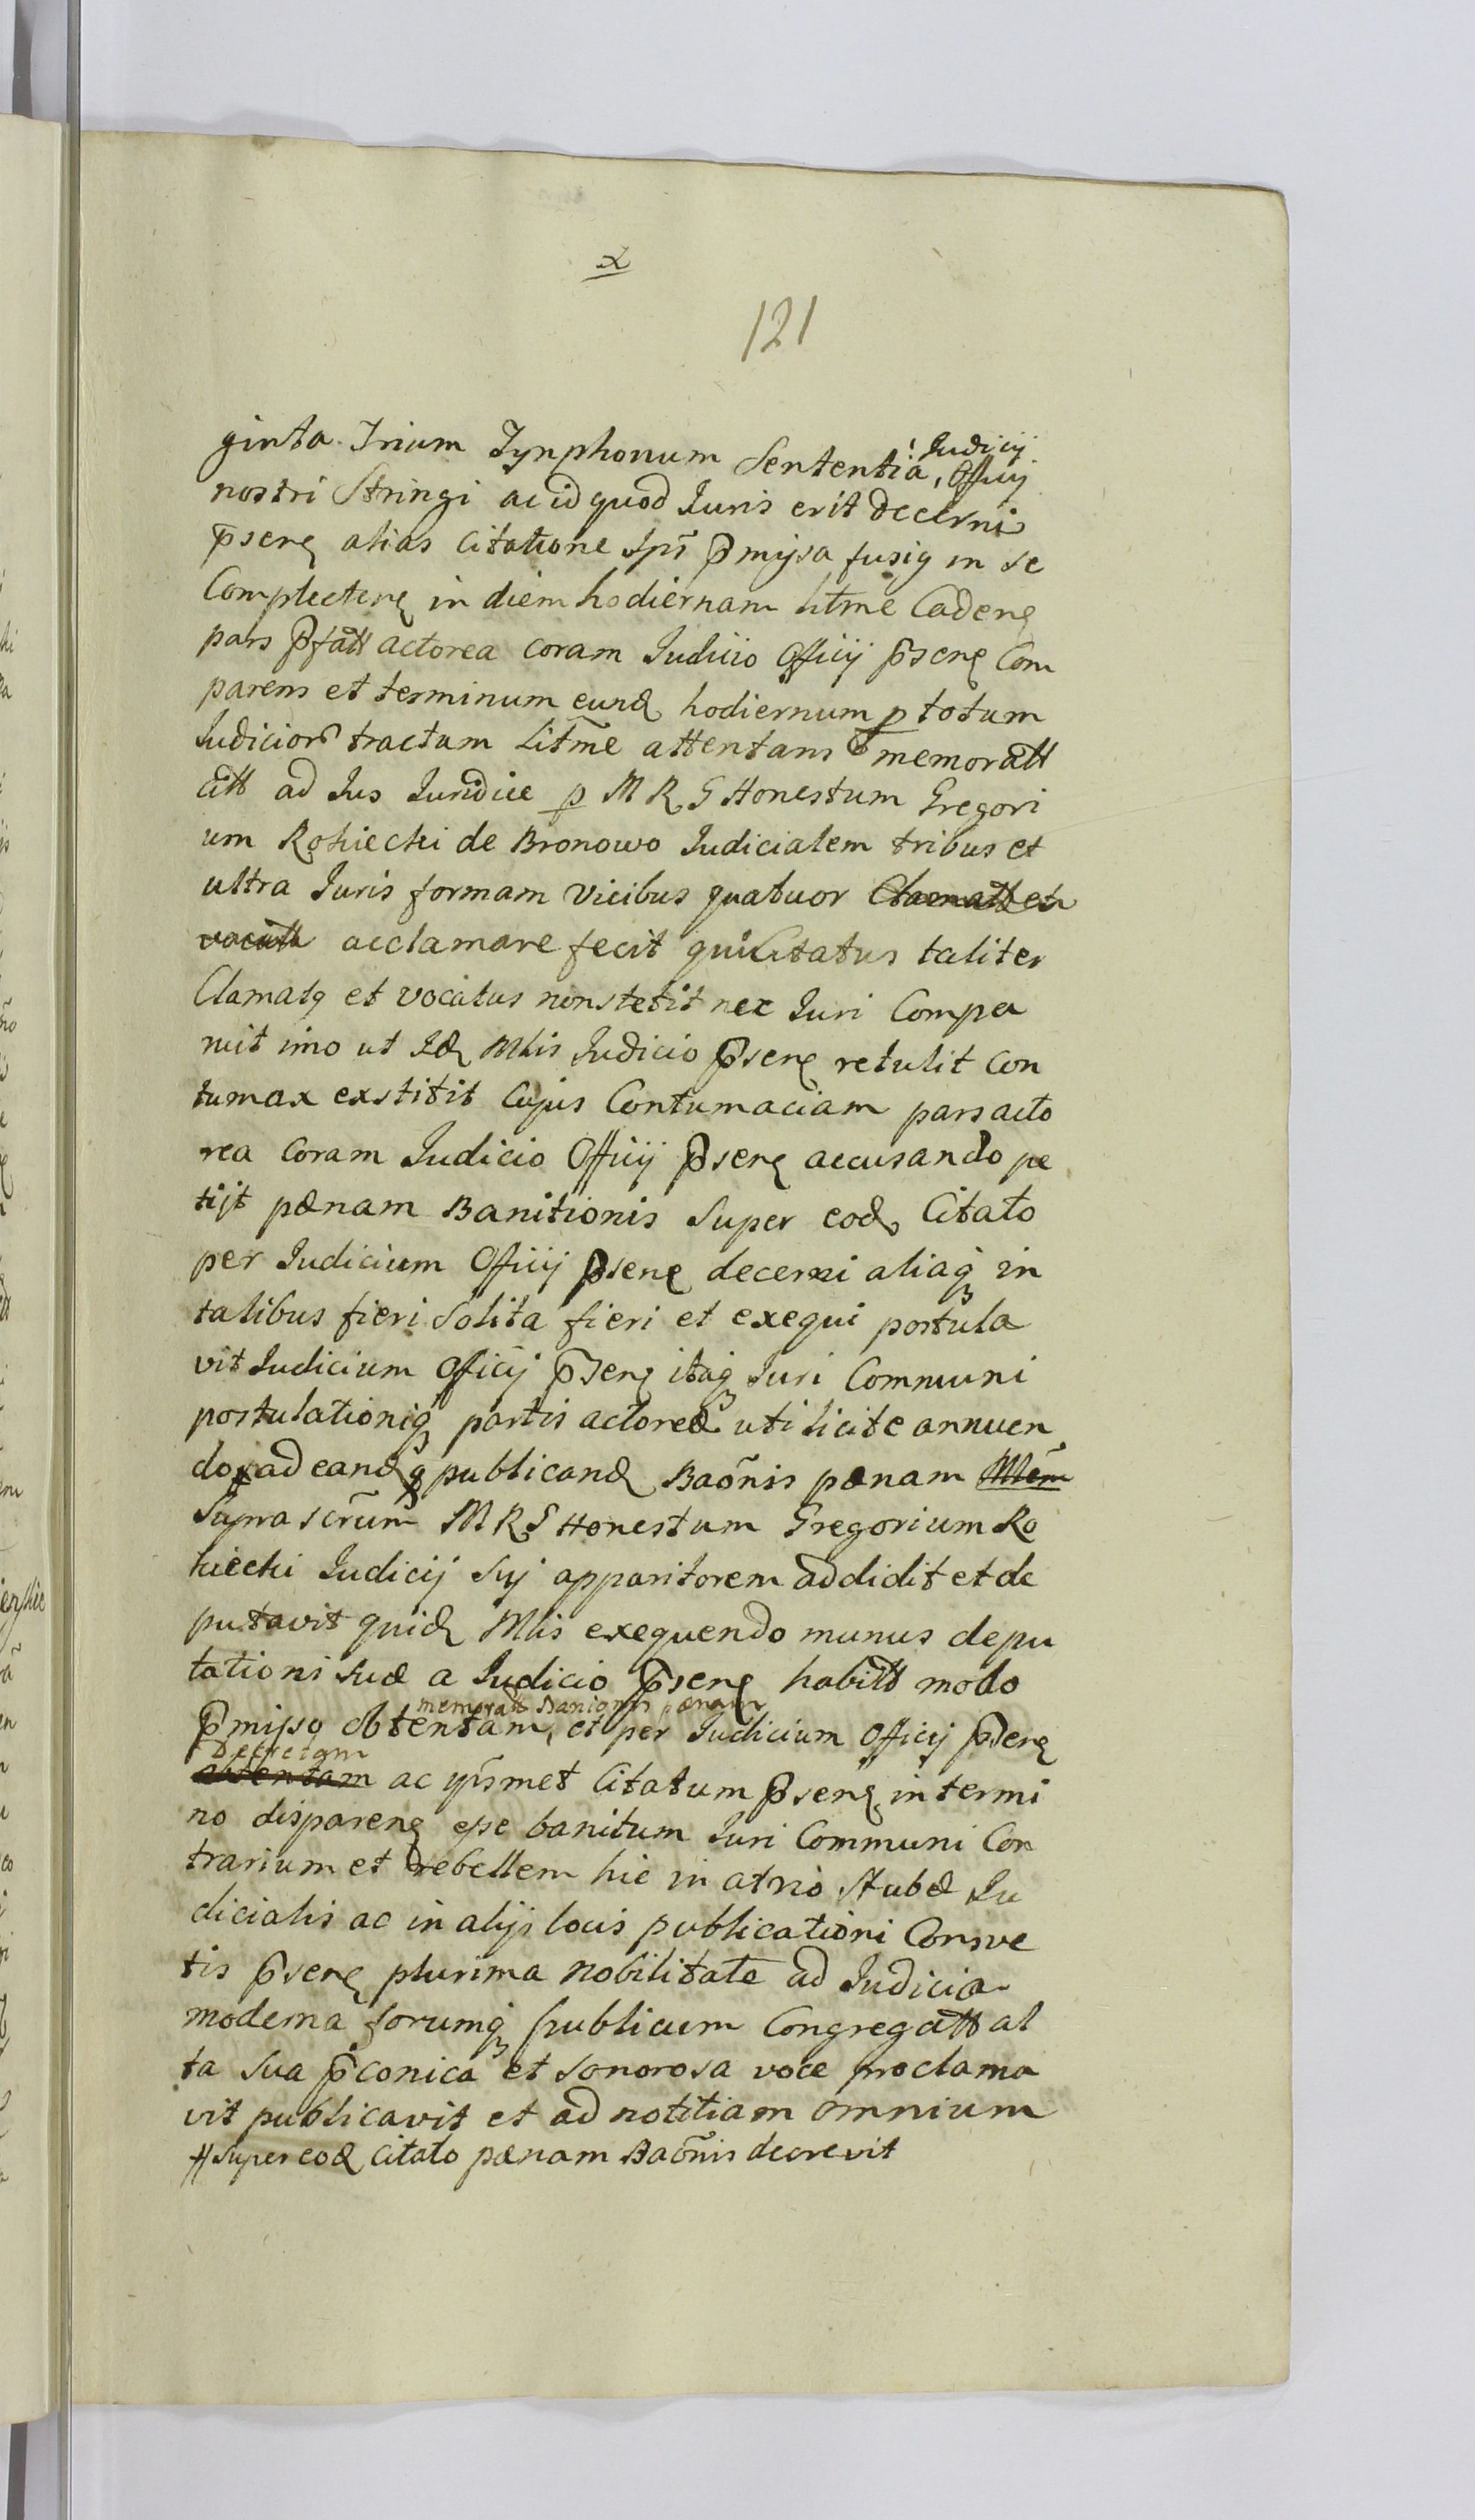 x
121
ginta Trium Tynphonum Sententia, Judicij Officij
nostri Stringi ac id quod Juris erit decerni
p̄seng alias Citatione Ips̄ p̄missa fusiq in se
Complecteng in diem hodiernam litm̄e Cadeng
pars p̄fatt actorea coram Judicio Officij p̄seng Com
parens et terminum eund hodiernum p totum
Judicior tractum Litm̄e attentans memoratt
citt ad Jus Juridice p M R G Honestum Gregori
um Rokiecki de Bronowo Judicialem tribus et
ultra Juris formam vicibus quatuor Clamatt et
vocatt acclamare fecit qui Citatus taliter
Clamatq et vocatus non stetit nec Juri Compa
ruit imo ut Id Mlis Judicio p̄seng retulit Con
tumax exstitit Cujus Contumaciam pars acto
rea Coram Judicio Officij p̄seng accusando pe
tijt pænam Banitionis super eod Citato
per Judicium Officij p̄seng decerni aliaq in
talibus fieri solita fieri et exequi postula
vit Judicium Officij p̄seng itaq Juri Communi
postulationiq partis actoreæ uti licite annuen
do # ad eandq publicand Bao̅nis pænam Mlem̄
Supra scr̄um M R G Honestum Gregorium Ro
kiecki Judicij sui apparitorem addidit et de
putavit quid Mlis exequendo munus depu
tationi suæ a Judicio p̄seng habitt modo
p̄misso obtentam, memoratt Banionis pænam et per Judicium Officij p̄seng
Decretam
obtentam ac ip̄smet Citatum p̄seng in termi
no dispareng esse banitum Juri Communi Con
trarium et rebellem hic in atrio Stubæ Ju
dicialis ac in alijs locis publicationi Consve
tis p̄seng plurima Nobilitate ad Judicia
moderna forumq publicum Congregatt al
ta sua p̄conica et sonorosa voce proclama
vit publicavit et ad notitiam omnium
# super eod Citato pænam Bao̅nis decrevit